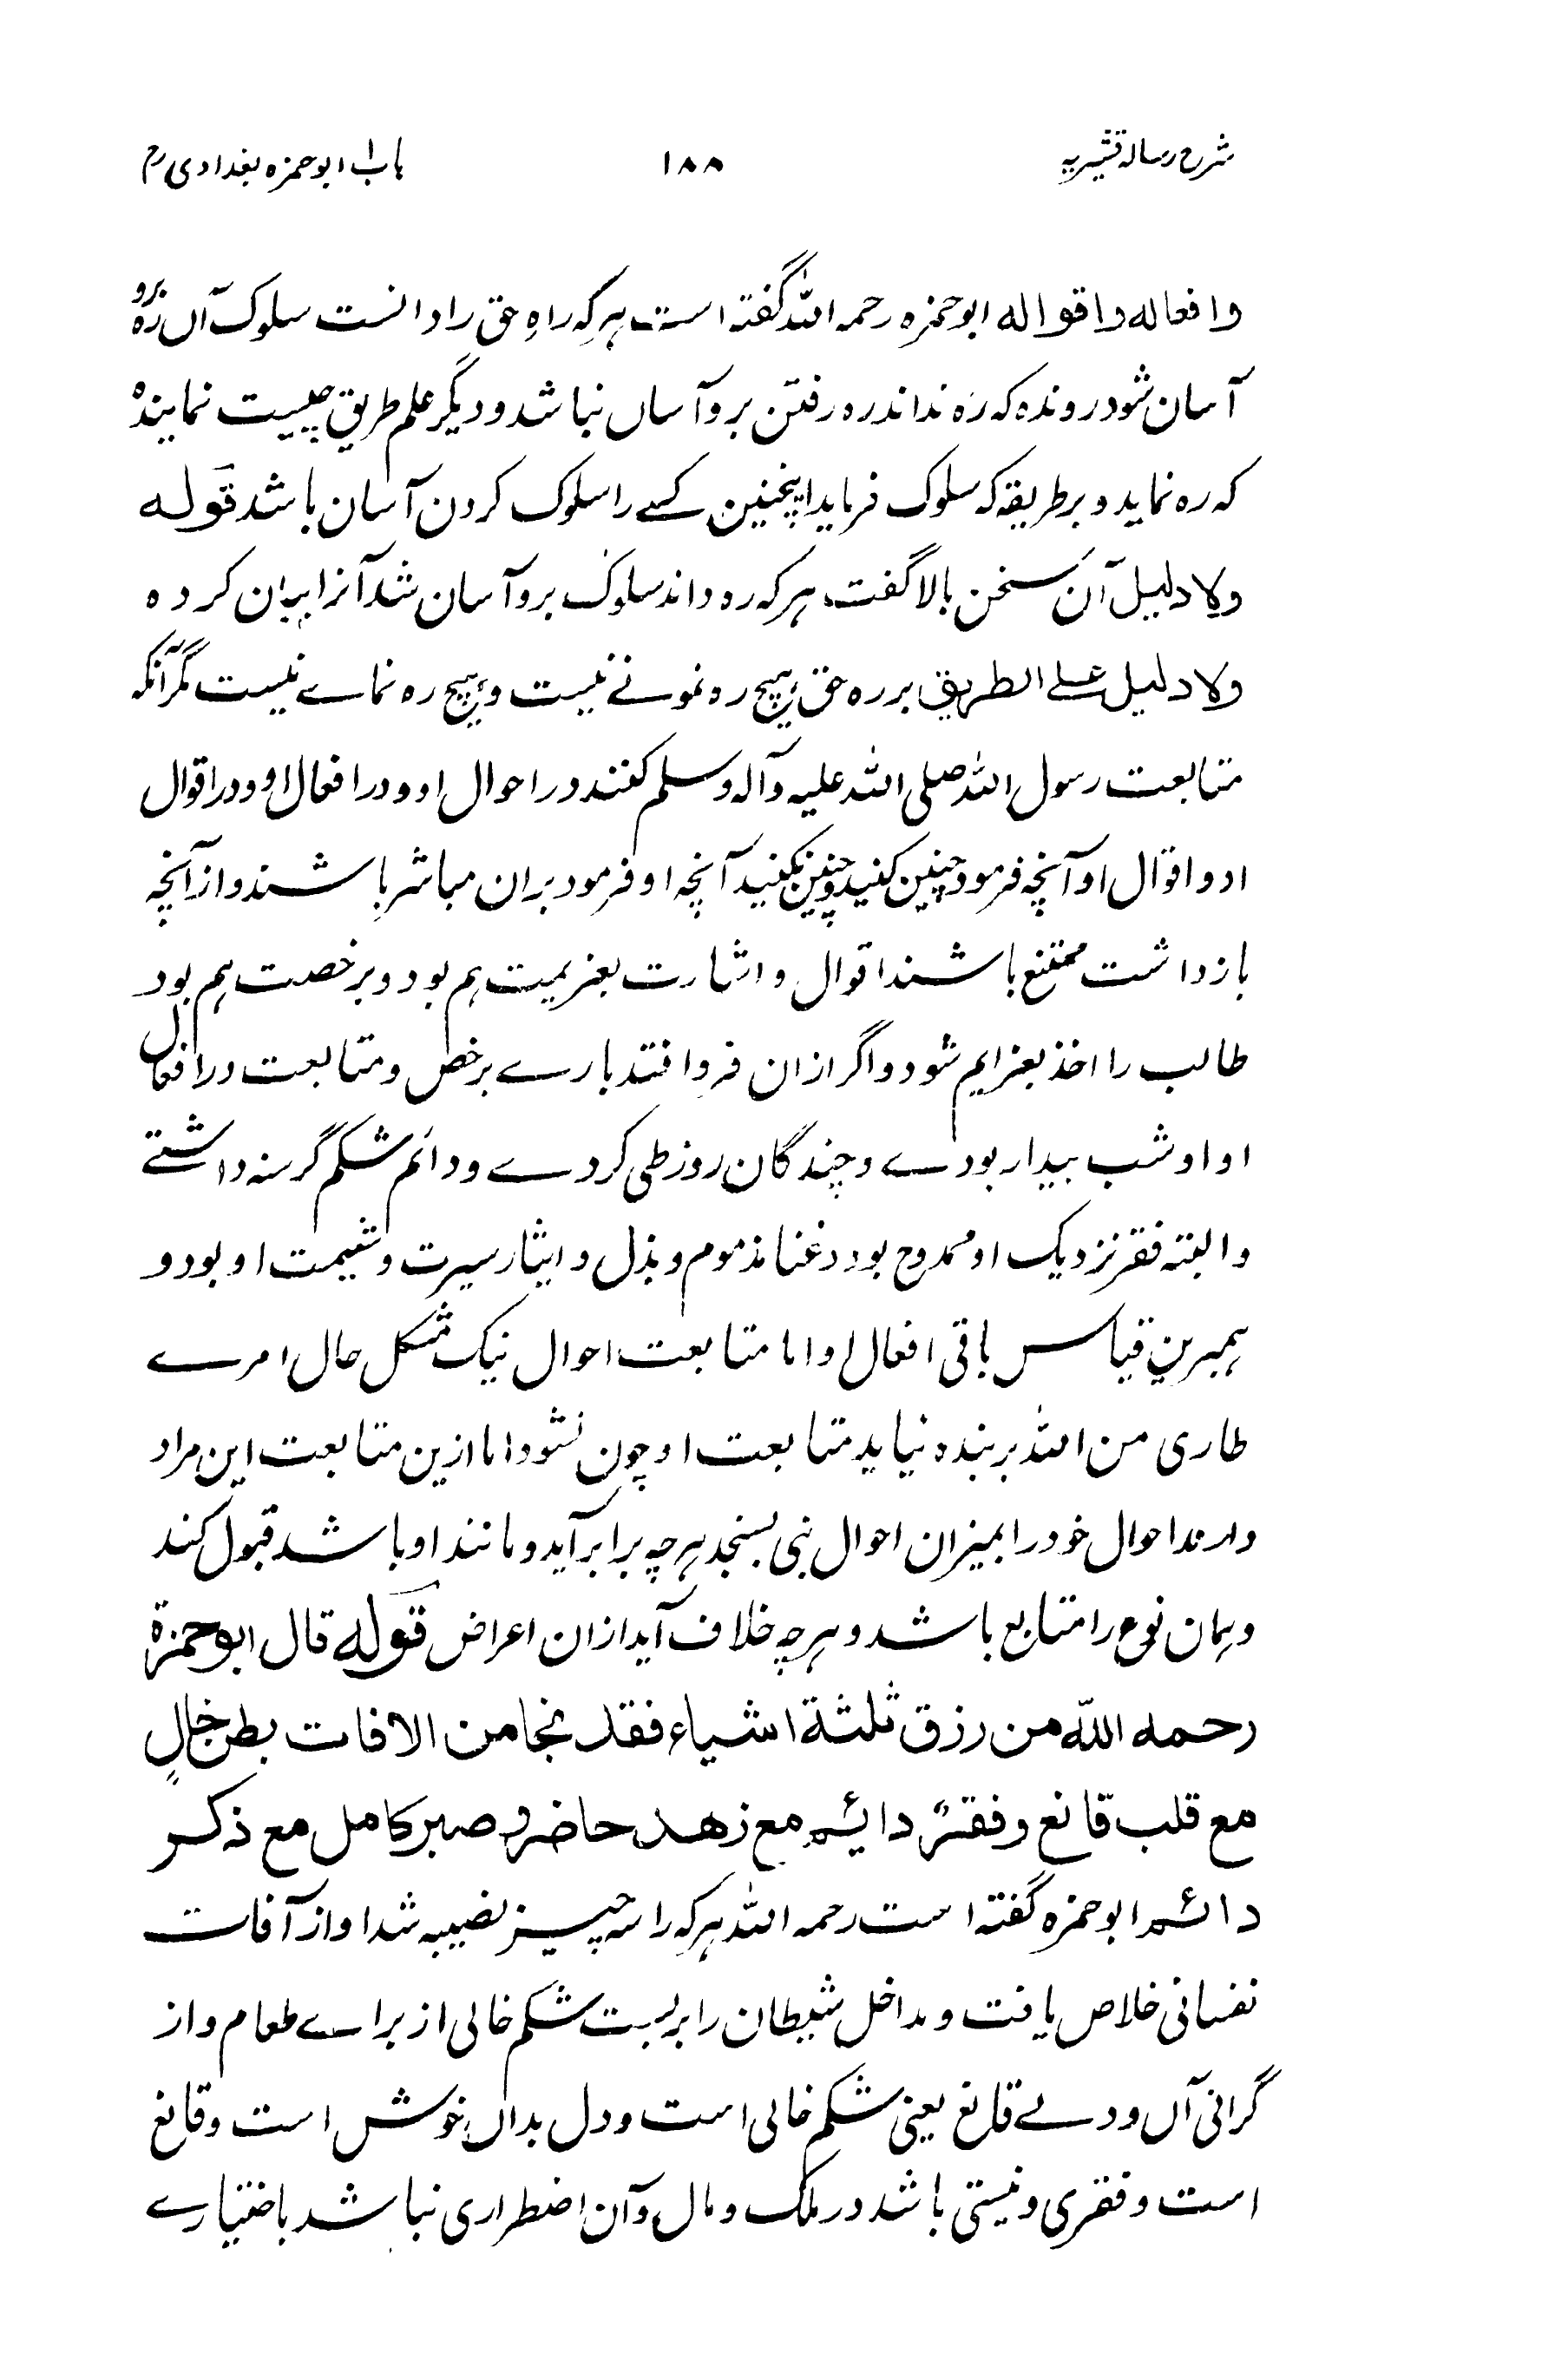 شرح رساله قشیریه ۱۸۸ باب ابوحمزه بغدادی رح
وافعاله واقواله ابوحمزه رحمه الله گفته است هرکه راهِ حق را دانست سلوک آں رَه برو
آسان شود رونده که رَه نداند ره رفتن بروآساں نباشد ودیگر علم طریق چیست نمایندهٔ
که ره نماید و برطریقه که سلوک فرماید اینچنین کسے را سلوک کردن آسان باشد قوله
ولا دلیل آن سخن بالا گفت هرکه ره داند سلوک بروآسان شد آنرا بیان کرده
ولا دلیل علی الطریق برره حق هیچ ره نمونے نیست و هیچ ره نماے نیست مگر آنکه
متابعت رسول الله صلی الله علیه وآله وسلم کنند در احوال او ودر افعال او ودر اقوال
او واقوال او آنچه فرمود چنین کنید وچنین نکنید آنچه او فرمود بران مباشر باشند واز آنچه
بازداشت ممتنع باشند اقوال و اشارت بعزیمیت هم بود و برخصت هم بود
طالب را اخذ بعزایم شود واگر ازان فروافتد بارے برخص و متابعت در افعال
او او شب بیدار بودے وچندگان روز طی کردے ودائم شکم گرسنه داشتے
والبته فقر نزدیک او ممدوح بود وغنا مذموم و بذل و ایثار سیرت وشیمت او بود و
همبرین قیاس باقی افعال او اما متابعت احوال نیک مشکل حال امرے
طاری من الله بر بنده نیاید متابعت او چون نشود اما ازین متابعت این مراد
دارند احوال خود را بمیزان احوال نبی بسنجد هرچه برابر آید و مانند او باشد قبول کند
وهمان نوع را متابع باشد وهرچه خلاف آید ازان اعراض قوله قال ابوحمزة
رحمه الله من رزق ثلثة اشیاء فقد نجا من الافات بطن خالٍ
مع قلب قانع وفقرٌ دائم مع زهد حاضر و صبر کامل مع ذکر
دائم ابوحمزه گفته است رحمه الله هرکه را سه چیز نصیبه شد او از آفات
نفسانی خلاص یافت و مداخل شیطان را بربست شکم خالی از براے طعام و از
گرانی آں ودلے قانع یعنی شکم خالی است ودل بداں خوش است وقانع
است و فقری و نیستی باشد در ملک و مال وآن اضطراری نباشد باختیارے